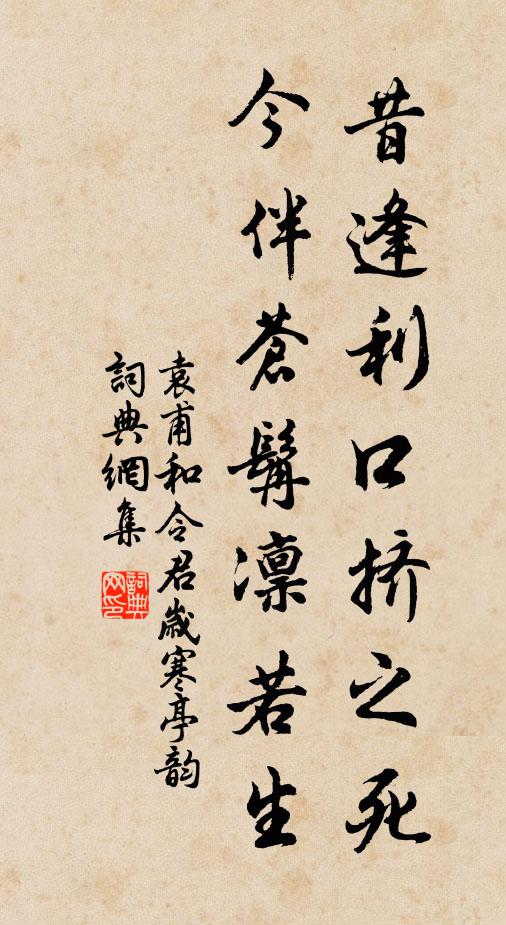 昔逢利口挤之死
今伴苍髯凛若生
袁甫和令君岁寒亭韵
词典网集
词典网印